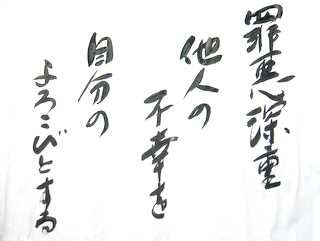 罪悪深重
他人の
不幸を
自分の
よろこびとする